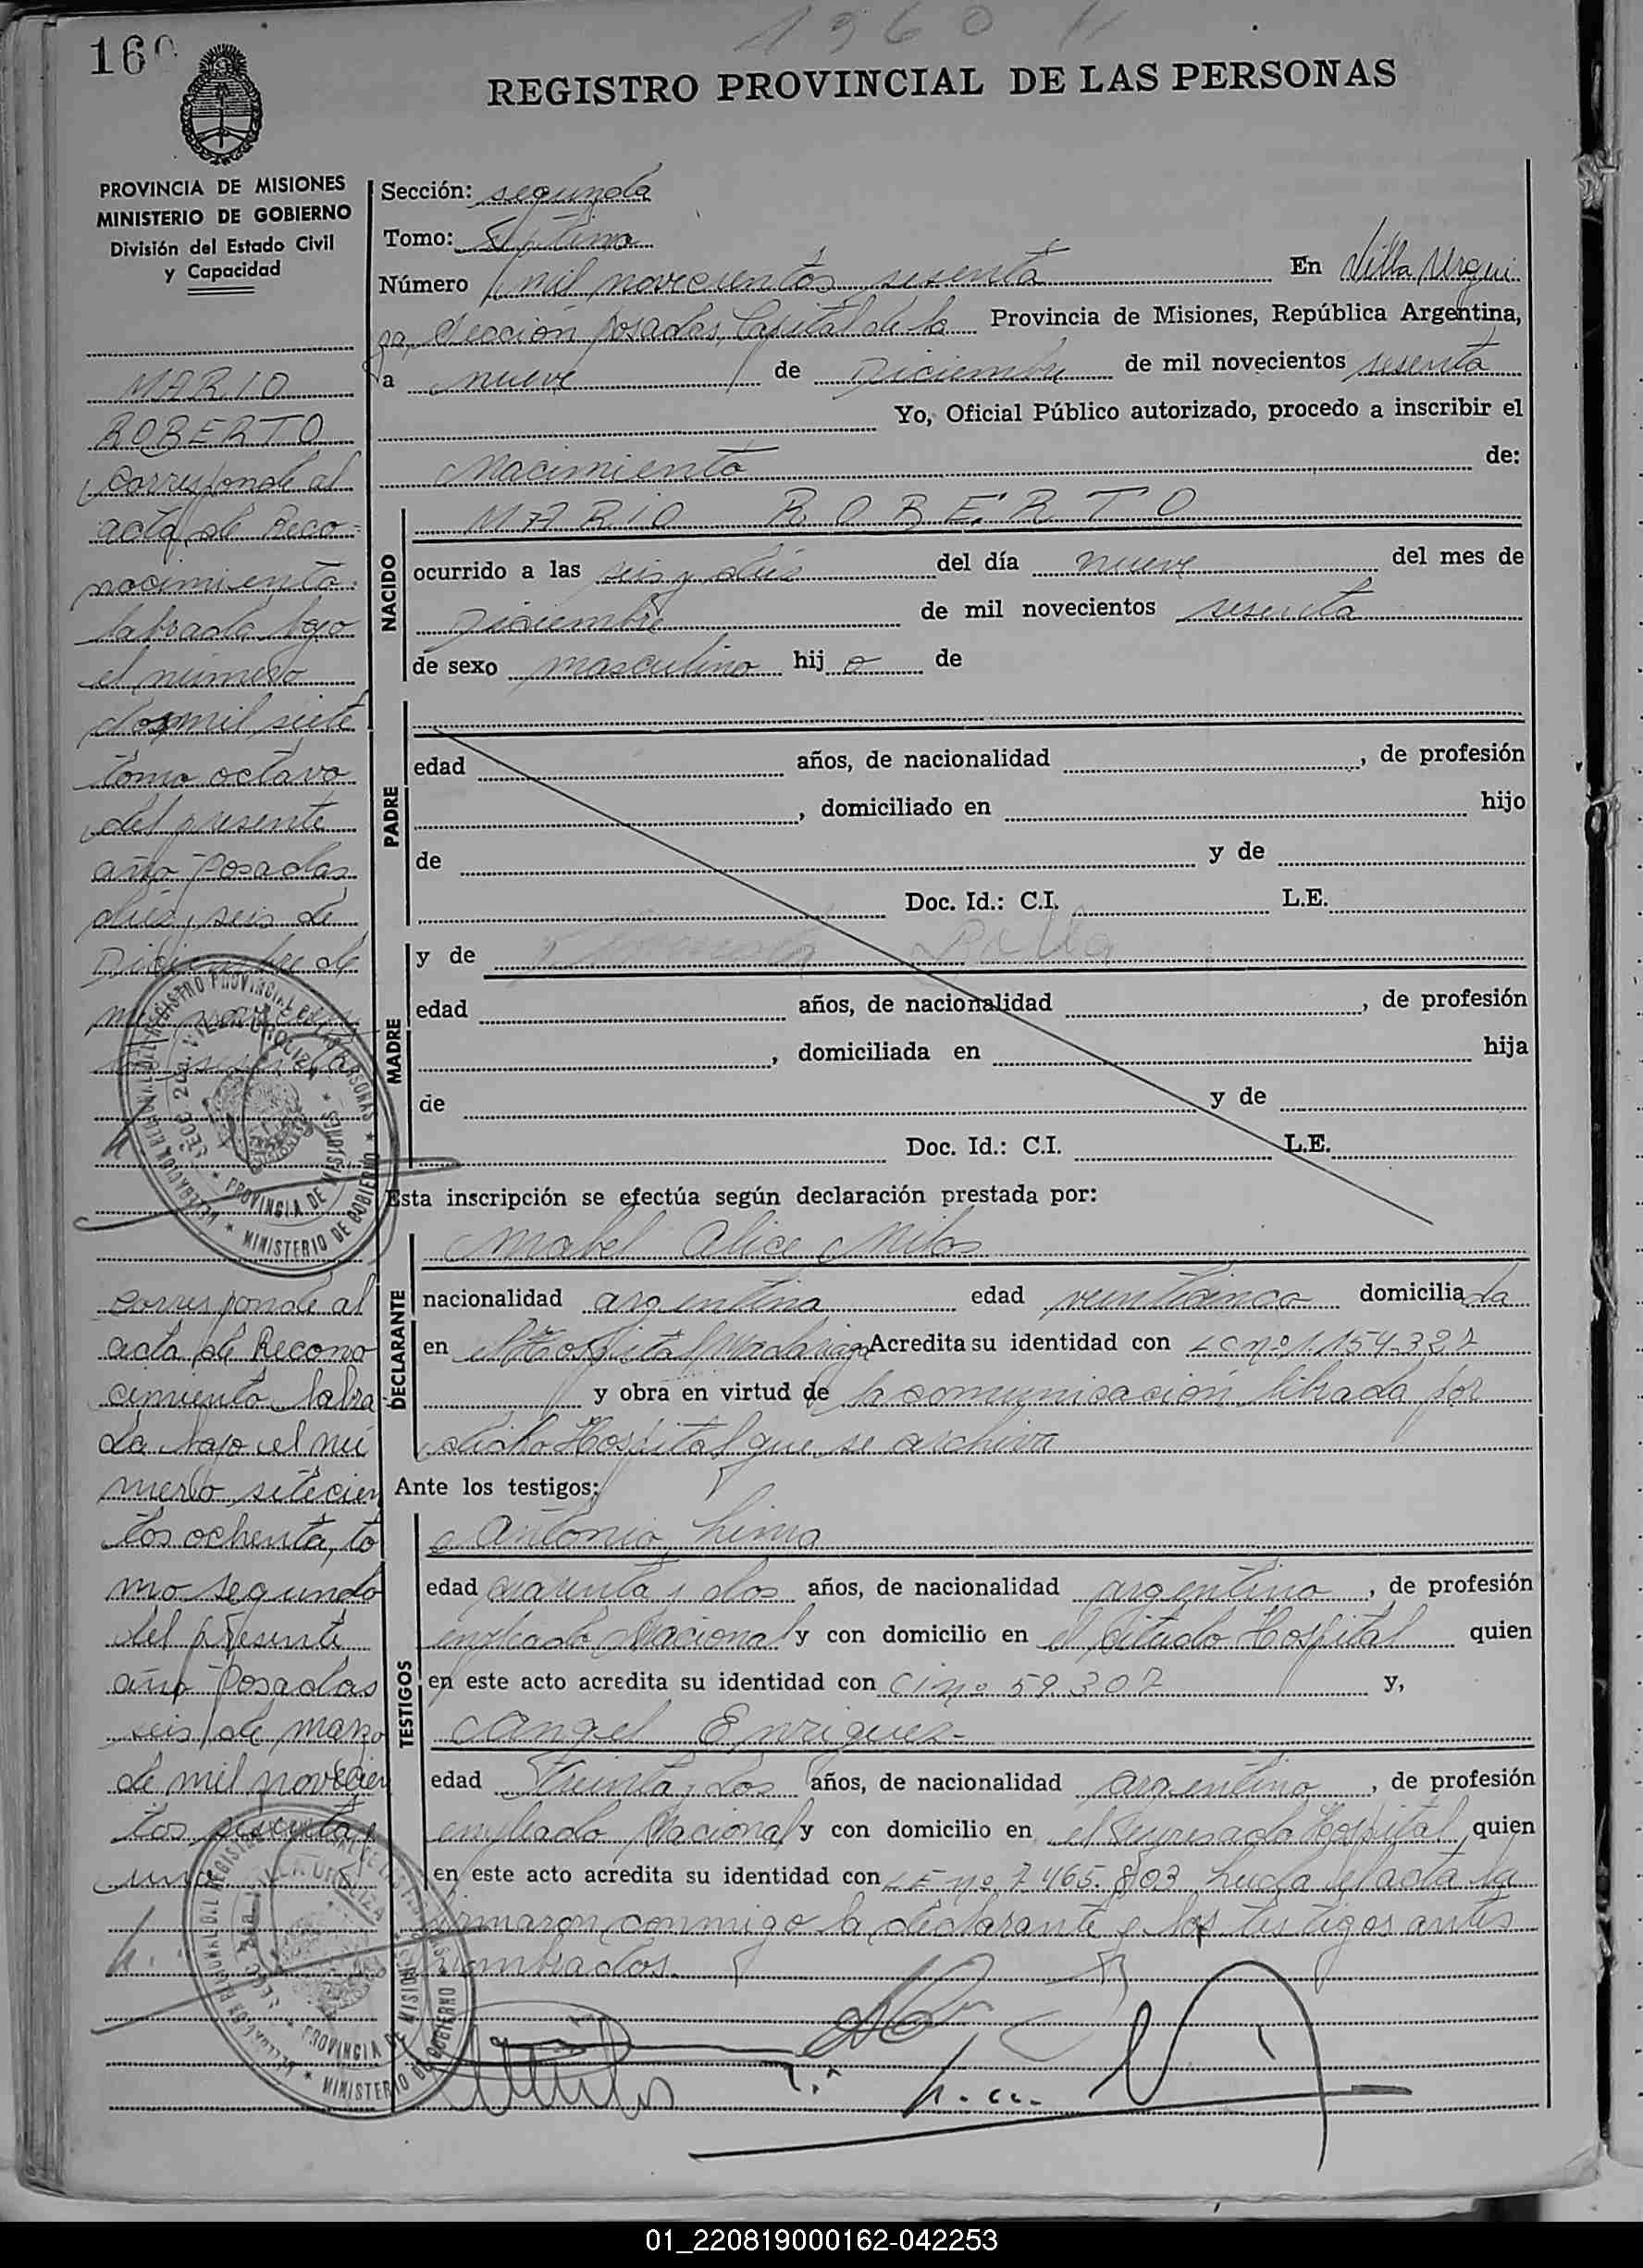 1960
160
REGISTRO PROVINCIAL DE LAS PERSONAS
PROVINCIA DE MISIONES
MINISTERIO DE GOBIERNO
División del Estado Civil
y Capacidad
MARIO
ROBERTO
Corresponde al
acta de Reco-
nocimiento
labrada bajo
el número
dosmil siete
tomo octavo
del presente
año Posadas
diez y seis de
Diciembre de
mil novecientos
sesenta
corresponde al
acta de Recono
cimiento labra
da bajo el nú
mero setecien
tos ochenta, to
mo segundo
del presente
año Posadas
seis de marzo
de mil novecien
tos sesenta y
uno
Sección: segunda
Tomo: Séptimo
Número mil novecientos sesenta En Villa Urqui
za, Sección Posadas, Capital de la Provincia de Misiones, República Argentina,
a nueve de Diciembre de mil novecientos sesenta
Yo, Oficial Público autorizado, procedo a inscribir el
Nacimiento de:
NACIDO
MARIO ROBERTO
ocurrido a las seis y diez del día nueve del mes de
Diciembre de mil novecientos sesenta
de sexo masculino hijo de
PADRE
edad años, de nacionalidad , de profesión
, domiciliado en hijo
de y de
Doc. Id.: C.I. L.E.
MADRE
y de
edad años, de nacionalidad , de profesión
, domiciliada en hija
de y de
Doc. Id.: C.I. L.E.
Esta inscripción se efectúa según declaración prestada por:
DECLARANTE
Mabel Alice Milos
nacionalidad argentina edad veinticinco domiciliada
en el Hospital Madariaga Acredita su identidad con LC nº 1.154.327
y obra en virtud de la comunicación librada por
dicho Hospital que se archiva
Ante los testigos:
TESTIGOS
Antonio Lima
edad cuarenta y dos años, de nacionalidad argentino, de profesión
empleado Nacional y con domicilio en el citado Hospital quien
en este acto acredita su identidad con CI nº 59.307 y,
Angel Enriquez-
edad treinta y dos años, de nacionalidad argentino, de profesión
empleado Nacional y con domicilio en el expresado Hospital quien
en este acto acredita su identidad con LE nº 7.465.803 Leida el acta la
firmaron conmigo la declarante y los testigos antes
nombrados.
DELEGACION REGIONAL DEL REGISTRO PROVINCIAL DE LAS PERSONAS
SECC. 2da. VILLA URQUIZA
PROVINCIA DE MISIONES
MINISTERIO DE GOBIERNO
01_220819000162-042253